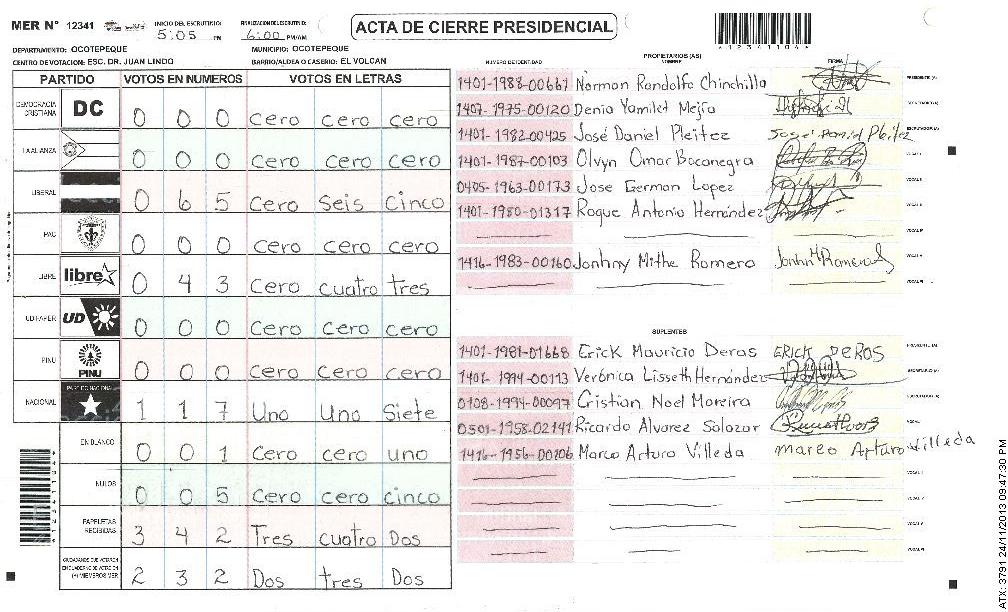 MER N° 12341 INICIO DEL ESCRUTINIO: 5:05 PM FINALIZACION ESCRUTINIO: 6:00 PM/AM ACTA DE CIERRE PRESIDENCIAL *12341104*
DEPARTAMENTO: OCOTEPEQUE MUNICIPIO: OCOTEPEQUE
CENTRO DE VOTACION: ESC. DR. JUAN LINDO BARRIO/ALDEA O CASERIO: EL VOLCAN
PARTIDO VOTOS EN NUMEROS VOTOS EN LETRAS
DEMOCRACIA CRISTIANA DC 0 0 0 Cero cero cero
LA ALIANZA 0 0 0 Cero cero cero
LIBERAL 0 6 5 Cero Seis Cinco
PAC 0 0 0 Cero cero cero
LIBRE libre 0 4 3 Cero cuatro tres
UD-FAPER UD 0 0 0 Cero Cero cero
PINU PINU 0 0 0 Cero Cero cero
NACIONAL PARTIDO NACIONAL 1 1 7 Uno Uno Siete
EN BLANCO 0 0 1 Cero cero uno
NULOS 0 0 5 Cero cero cinco
PAPELETAS RECIBIDAS 3 4 2 Tres cuatro Dos
CIUDADANOS QUE VOTARON EN CUADERNO DE VOTACION (+) MIEMBROS MER 2 3 2 Dos tres Dos
PROPIETARIOS (AS)
NUMERO DE IDENTIDAD NOMBRE FIRMA
1401-1988-00667 Norman Randolfo Chinchilla PRESIDENTE (A)
1407-1975-00120 Denia Yamilet Mejía SECRETARIO (A)
1401-1982-00425 José Daniel Pleitez Jose Daniel Pleitez ESCRUTADOR (A)
1401-1987-00103 Olvyn Omar Bocanegra VOCAL I
0405-1963-00173 Jose German Lopez VOCAL II
1401-1980-01317 Roque Antonio Hernández VOCAL III
VOCAL IV
1416-1983-00160 Jonhny Mithe Romero Jonhn M Romero VOCAL V
VOCAL VI
SUPLENTES
1401-1981-01668 Erick Mauricio Deras ERICK DEROS PRESIDENTE (A)
1401-1994-00113 Verónica Lisseth Hernández SECRETARIO (A)
0108-1994-00097 Cristian Noel Moreira ESCRUTADOR (A)
0501-1958-02141 Ricardo Alvarez Solozar VOCAL I
1416-1956-00106 Marco Arturo Villeda Marco Arturo Villeda
VOCAL V
VOCAL VI
ATX: 3791 24/11/2013 09:47:30 PM